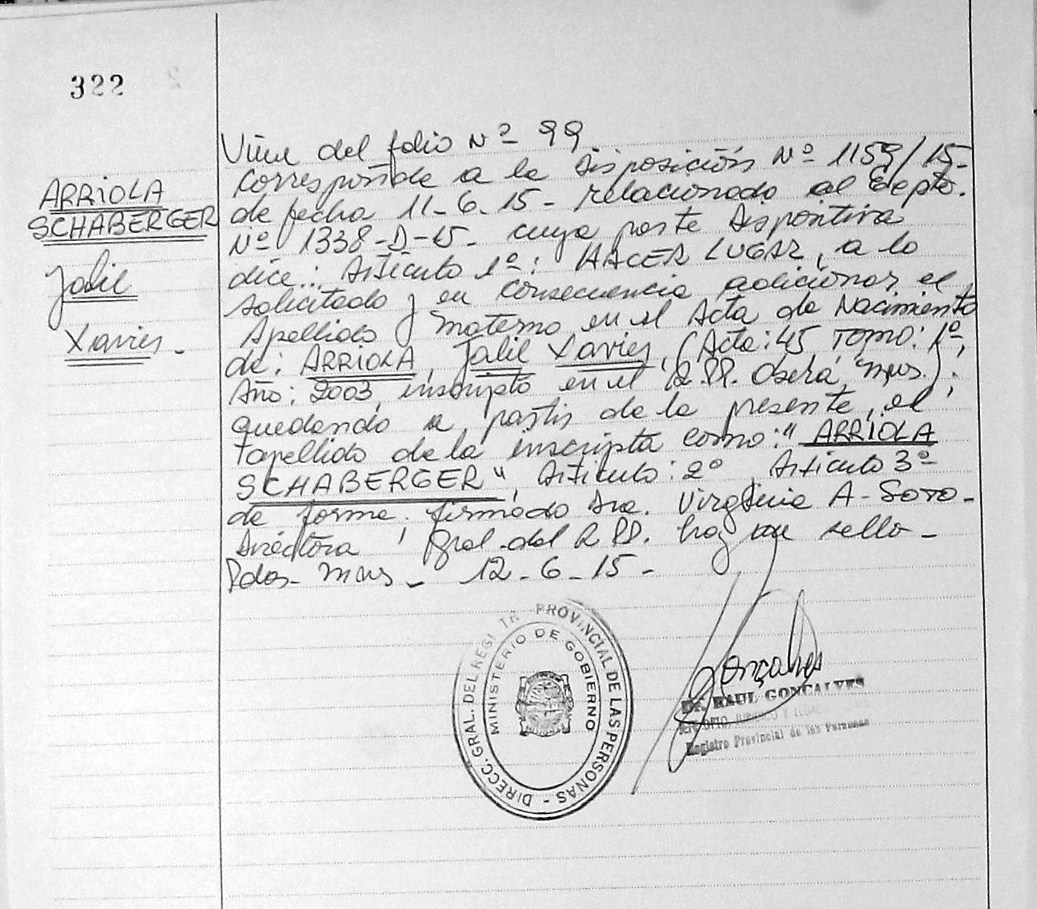 322
ARRIOLA
SCHABERGER
Jalil
Xavier -
Viene del folio Nº 99
Corresponde a la Disposición Nº 1159/15-
de fecha 11-6-15- relacionado al Expte.
Nº 1338-D-15- cuya parte dispositiva
dice: Artículo 1º: HACER LUGAR, a lo
solicitado y en consecuencia adicionar el
Apellido materno en el Acta de Nacimiento
de: ARRIOLA, Jalil Xavier, (Acta: 45 TOMO: 1º,
Año: 2003, inscripto en el R.PP. Oberá, Mnes.).
quedando a partir de la presente, el
apellido de la inscripta como: "ARRIOLA
SCHABERGER", Artículo: 2º Artículo 3º
de forma. firmado Dra. Virginia A. Soto-
Directora Gral. del R.PP. hay un sello-
Pdas- Mnes- 12-6-15-
DIRECC. GRAL. DEL REGISTR PROVINCIAL DE LAS PERSONAS -
MINISTERIO DE GOBIERNO
Gonçalves
Dr. RAUL GONCALVES
JURIDICO Y
Registro Provincial de las Personas